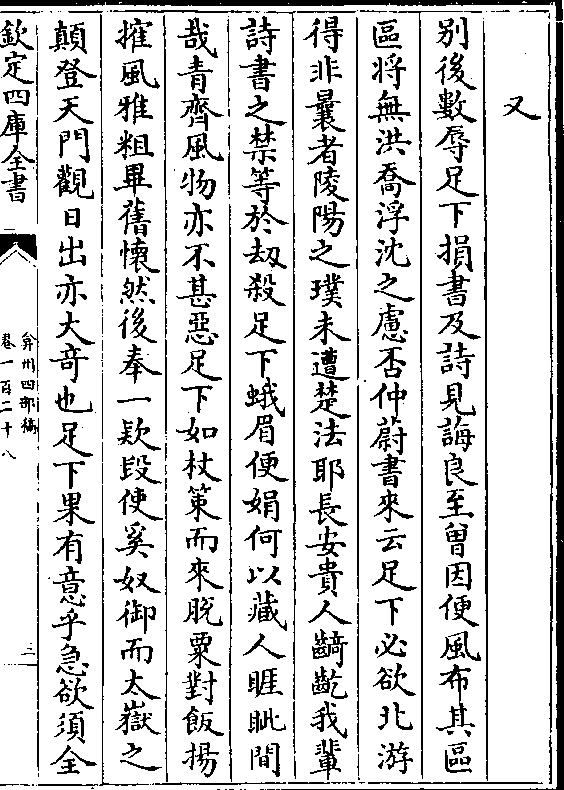 又
別後數辱足下損書及詩見誨良至曾因便風布其區
區将無洪喬浮沈之慮否仲蔚書來云足下必欲北游
得非曩者陵陽之璞未遭楚法耶長安貴人齮齕我輩
詩書之禁等於刼殺足下蛾眉便娟何以藏人睚眦間
哉青齊風物亦不甚惡足下如杖策而來脱粟對飯揚
搉風雅粗畢舊懐然後奉一欵段使奚奴御而太嶽之
顛登天門觀日出亦大奇也足下果有意乎急欲須全
欽定四庫全書
弇州四部稿
卷一百二十八
三